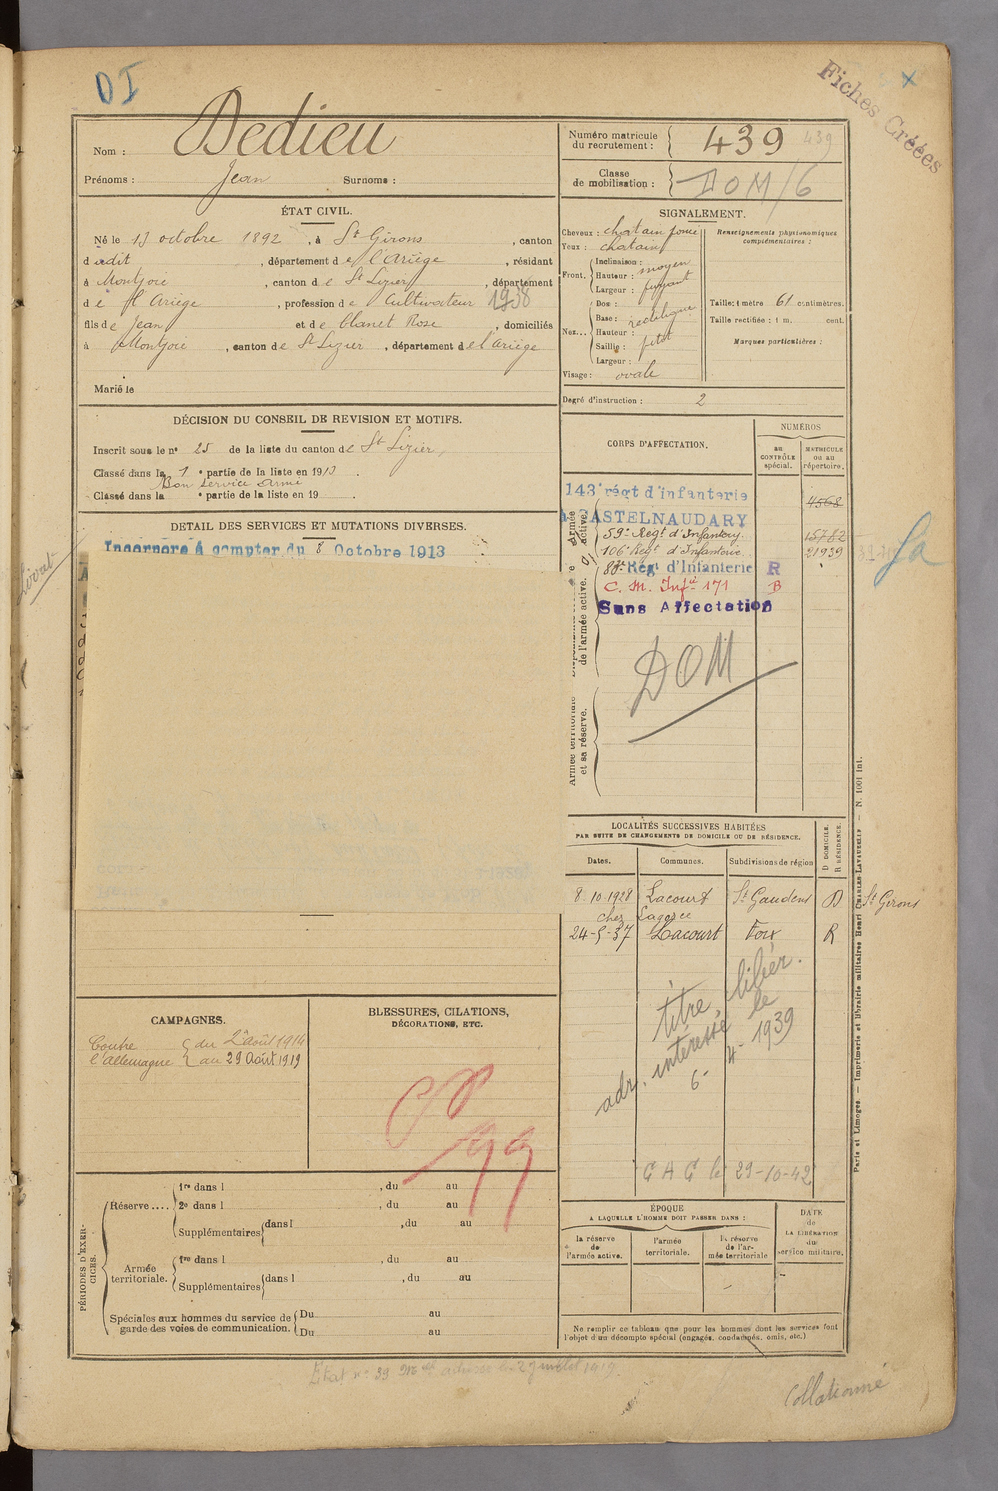 DI
Fiches Créées
Nom : Dedieu
Prénoms : Jean Surnoms :
Numéro matricule du recrutement : 439 439
Classe de mobilisation : DOM/6
ÉTAT CIVIL.
Né le 13 octobre 1892, à St Girons, canton
dudit, département de l'Ariège, résidant
à Montjoie, canton de St Lizier, département
de l'Ariège, profession de Cultivateur 1938
fils de Jean et de Blanet Rose, domiciliés
à Montjoie, canton de St Lizier, département de l'Ariège
Marié le
SIGNALEMENT.
Cheveux : chatain foncé
Yeux : chatains
Front. Inclinaison : moyen
Hauteur :
Largeur : fuyant
Nez... Dos : rectiligne
Base :
Hauteur :
Saillie : petit
Largeur :
Visage : ovale
Renseignements physionomiques complémentaires :
Taille: 1 mètre 61 centimètres.
Taille rectifiée : 1 m. cent.
Marques particulières :
Degré d'instruction : 2
DÉCISION DU CONSEIL DE REVISION ET MOTIFS.
Inscrit sous le n° 25 de la liste du canton de St Lizier,
Classé dans la 1e partie de la liste en 1913.
Bon service armé
Classé dans la e partie de la liste en 19
DETAIL DES SERVICES ET MUTATIONS DIVERSES.
Incorpore à compter du 8 Octobre 1913
CORPS D'AFFECTATION.
NUMÉROS
au CONTRÔLE spécial.
MATRICULE ou au répertoire.
Armée active.
de l'armée active.
Armée territoriale et sa réserve.
143e régt d'infanterie 4568
à CASTELNAUDARY
59e Regt d'Infanterie 15782
106e Regt d'Infanterie 21939
Régt d'Infanterie R
C. M. Infie 171 B
Sans Affectation
DOM
LOCALITÉS SUCCESSIVES HABITÉES
PAR SUITE DE CHANGEMENTS DE DOMICILE OU DE RÉSIDENCE.
Dates. Communes. Subdivisions de région D DOMICILE. R RÉSIDENCE.
8-10-1928 Lacourt St Gaudens D St Girons
chez Lagorce
24-5-37 Lacourt Foix R
titre libér.
adr. intéressé le
6-4-1939
CAC le 29-10-42
CAMPAGNES.
Contre l'Allemagne { du 2 août 1914
au 29 Août 1919
BLESSURES, CILATIONS, DÉCORATIONS, ETC.
99
PÉRIODES D'EXERCICES.
Réserve....
1re dans l , du au
2e dans l , du au
Supplémentaires dans l , du au
Armée territoriale.
1re dans l , du au
Supplémentaires dans l , du au
Spéciales aux hommes du service de garde des voies de communication.
Du au
Du au
ÉPOQUE
A LAQUELLE L'HOMME DOIT PASSER DANS :
la réserve de l'armée active.
l'armée territoriale.
la réserve de l'armée territoriale
DATE de LA LIBÉRATION du service militaire.
Ne remplir ce tableau que pour les hommes dont les services font l'objet d'un décompte spécial (engagés, condamnés, omis, etc.)
Paris et Limoges. — Imprimerie et librairie militaires Henri CHARLES-LAVAUZELLE — N. 1001 int.
Collationné